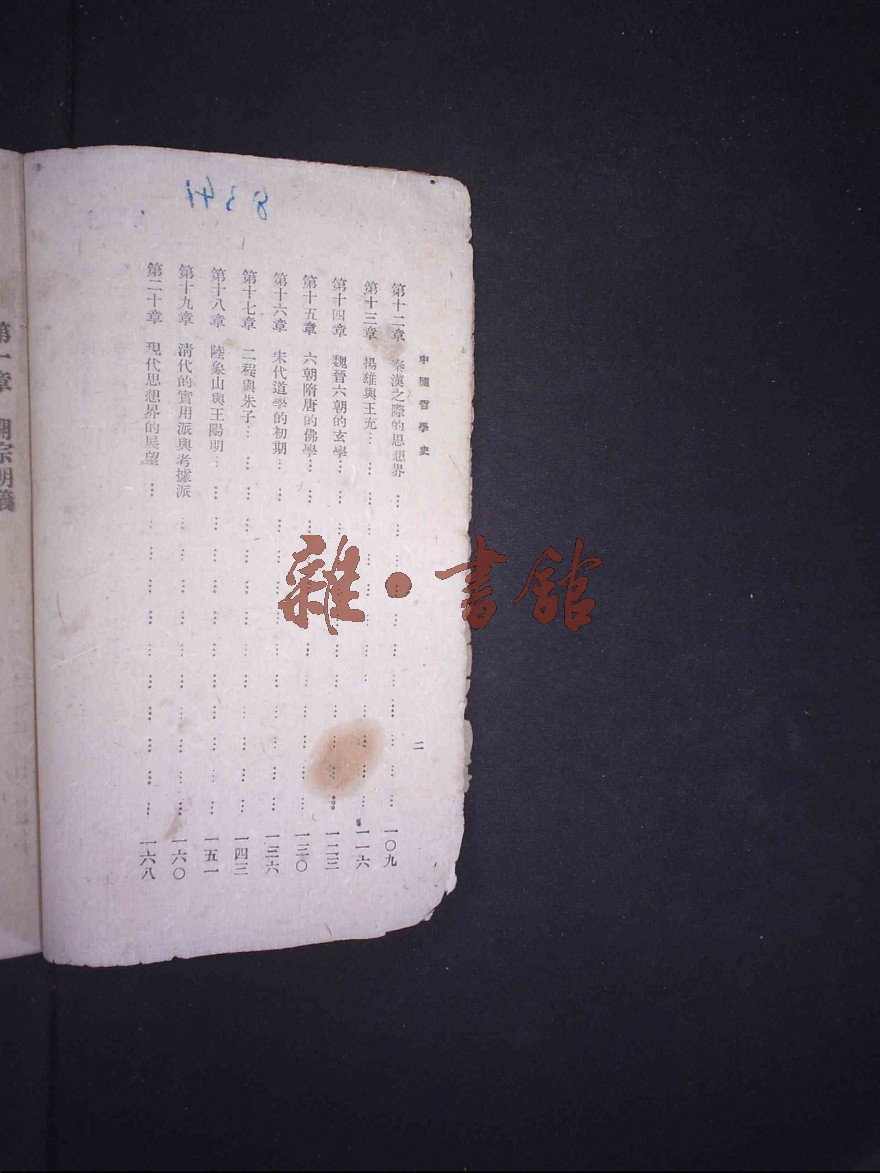 中國哲學史
二
第十二章 秦漢之際的思想界 …………… 一〇九
第十三章 揚雄與王充 …………… 一一六
第十四章 魏晉六朝的玄學 …………… 一二三
第十五章 六朝隋唐的佛學 …………… 一三〇
第十六章 宋代道學的初期 …………… 一三六
第十七章 二程與朱子 …………… 一四三
第十八章 陸象山與王陽明 …………… 一五一
第十九章 清代的實用派與考據派 …………… 一六〇
第二十章 現代思想界的展望 …………… 一六八
第一章 開宗明義
8341
雜·書館